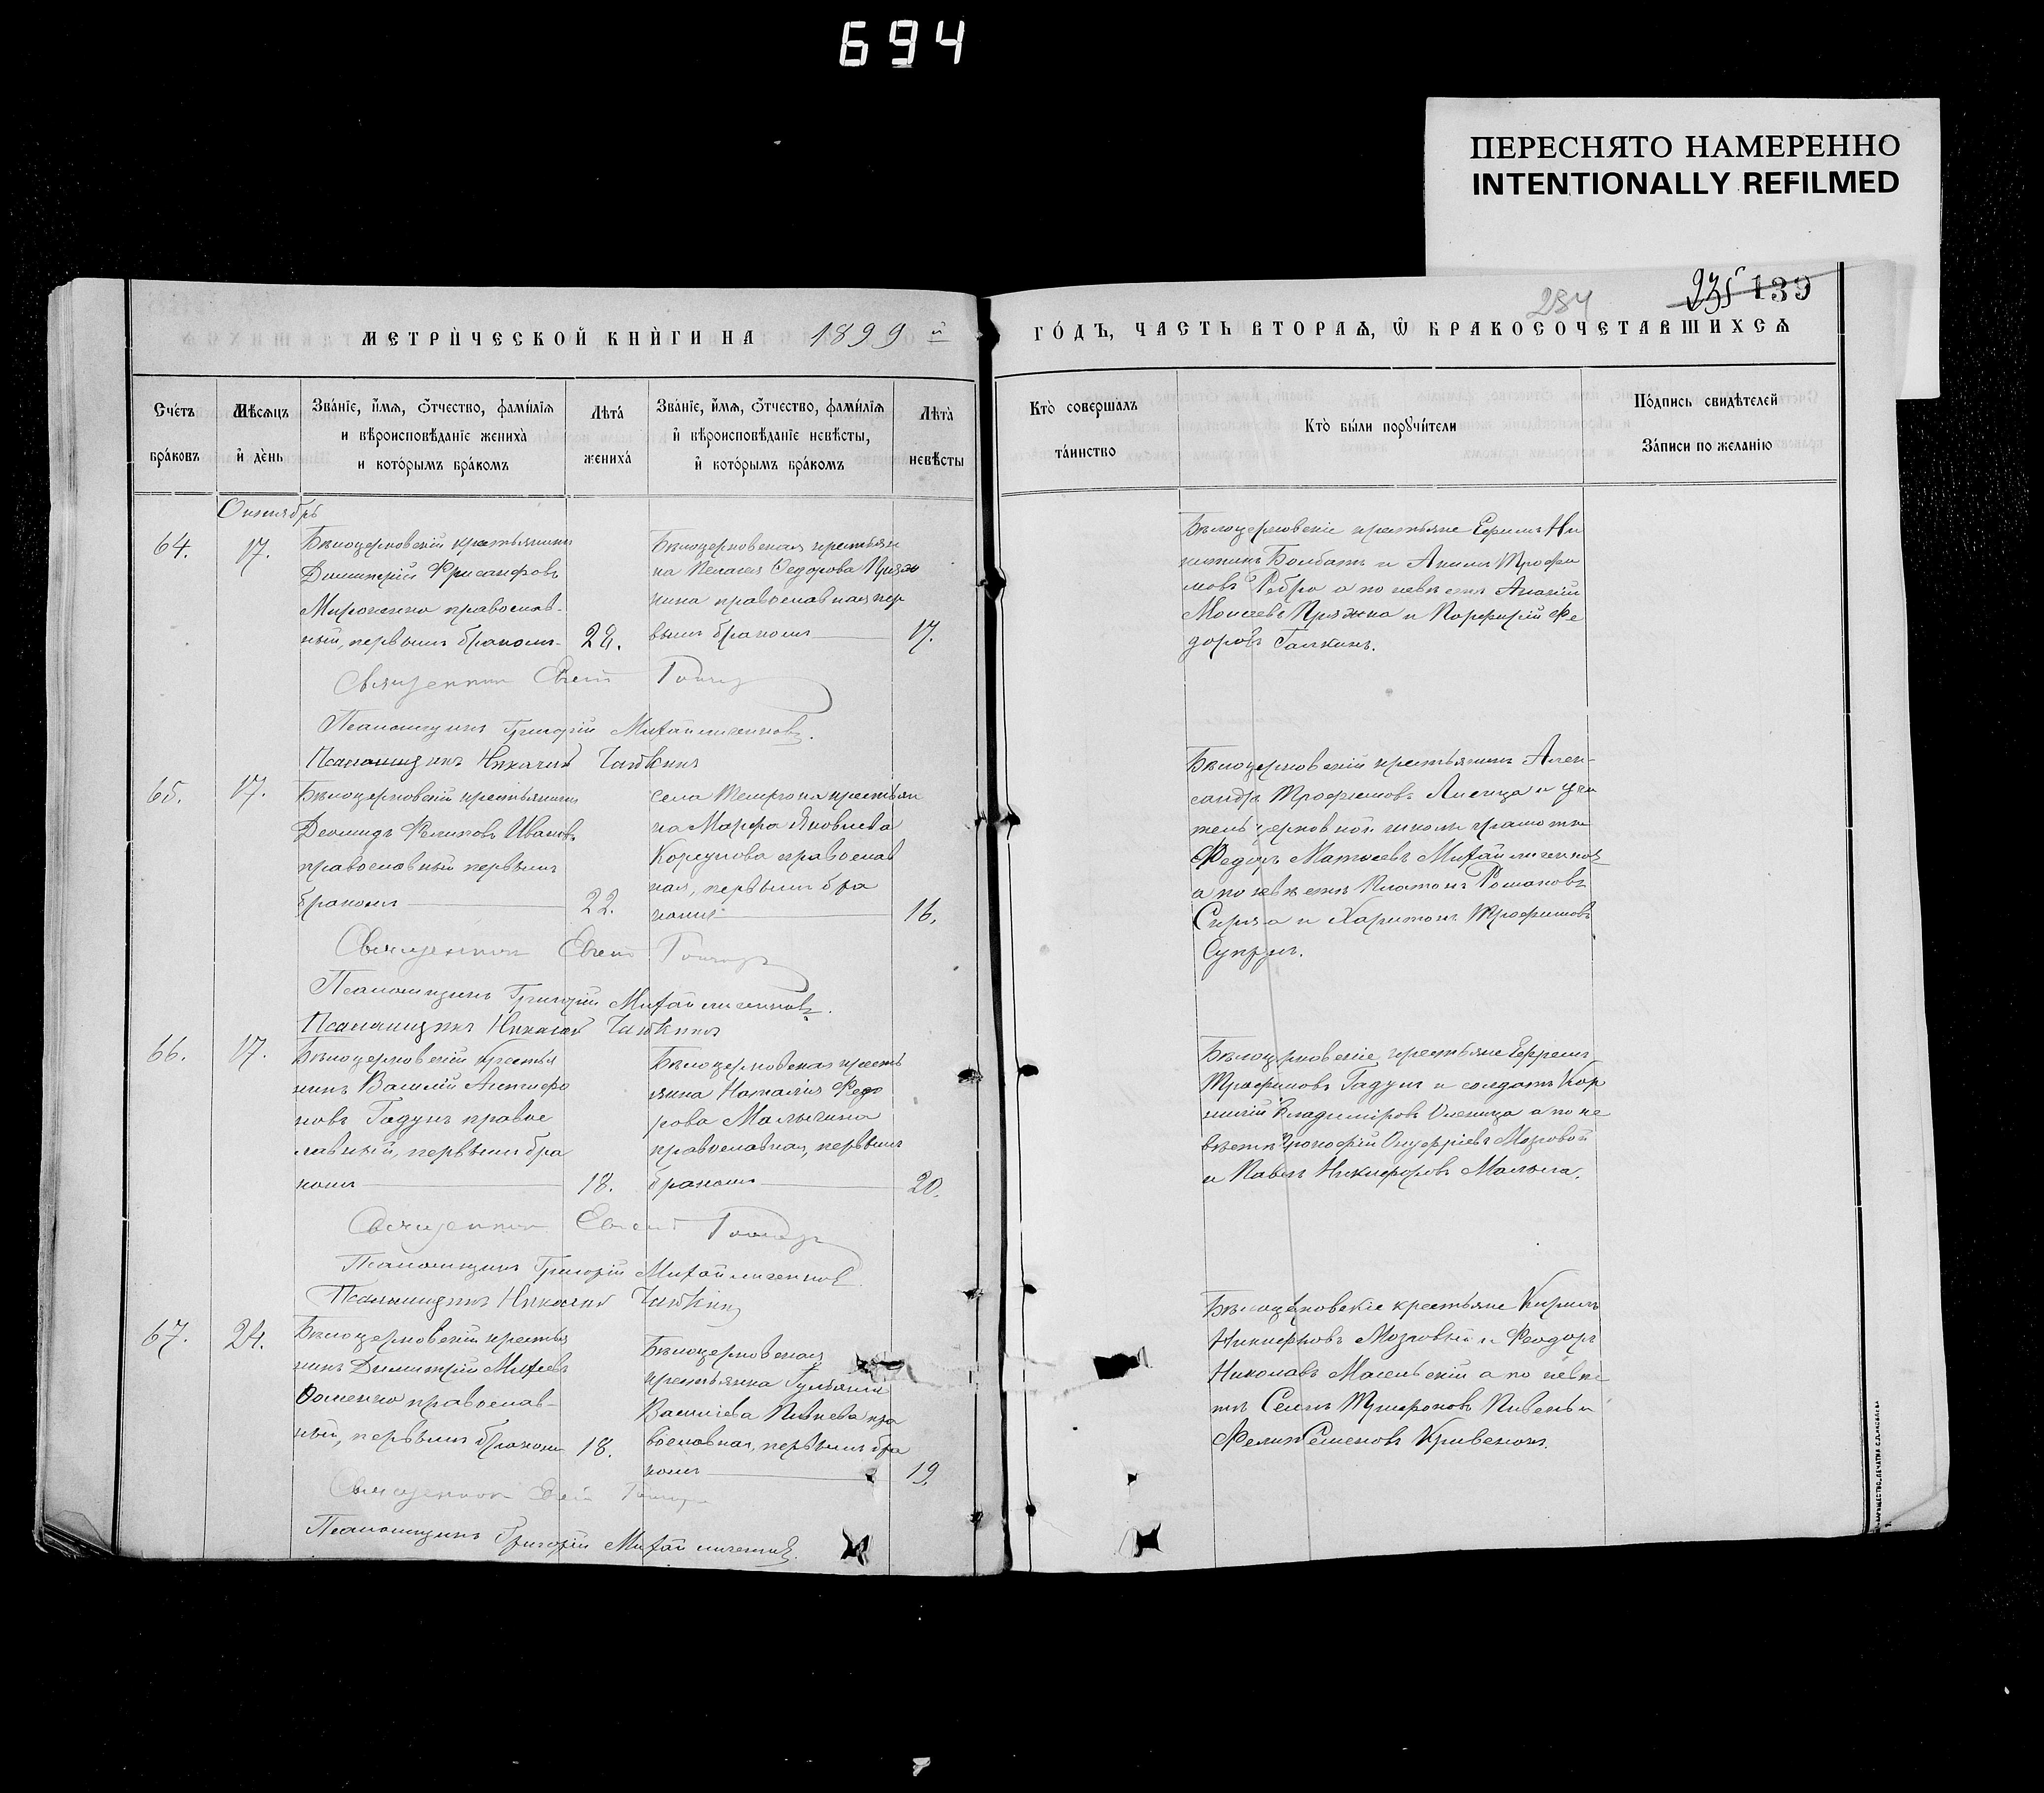 694
ПЕРЕСНЯТО НАМЕРЕННО
INTENTIONALLY REFILMED
284
235 139
МЕТРИ́ЧЕСКОЙ КНИ́ГИ НА 1899 й
ГО́ДЪ, ЧАСТЬ ВТОРАѦ, Ѿ БРАКОСОЧЕТАВШИХСѦ
Сче́тъ бра́ковъ
Мѣ́сѧцъ и҆ де́нь
Зва́нїе, и҆́мѧ, ѻ҆́тчество, фами́лїѧ
и вѣроисповѣ́данїе жениха̀
и кото́рымъ бра́комъ
Лѣта̀ жениха̀
Зва́нїе, и҆́мѧ, ѻ҆́тчество, фами́лїѧ
и҆ вѣроисповѣ́данїе невѣ́сты,
и҆ кото́рымъ бра́комъ
Лѣта̀ невѣ́сты
Кто̀ соверша́лъ
та́инство
Кто̀ бы́ли порꙋчи́тели
По́дпись свидѣ́телей
За́писи по жела́нїю
Октябрь
64.
17.
Бѣлоцерковскій крестьянинъ
Димитрій Фрисанфовъ
Мироненко православ-
ный, первымъ бракомъ
Бѣлоцерковская крестьян
ка Пелагея Федорова
православная пер
вымъ бракомъ
17.
Бѣлоцерковскіе крестьяне Ефимъ Ни
китинъ и Трофи
мовъ Ребро а по невѣстѣ
Моисеевъ Пряжка и Порфирій Фе
доровъ Галкинъ.
Священникъ
Псаломщикъ Григорій Михайличенковъ.
Псаломщикъ Николай
65.
17.
Бѣлоцерковскій крестьянинъ
Деомидъ Феликовъ Ивановъ
православный первымъ
бракомъ
22.
села крестьян
ка Марфа Яковлева
Корсунова православ
ная, первымъ бра
комъ
16.
Бѣлоцерковскій крестьянинъ Алек-
сандръ Трофимовъ Лисица и учи
тель церковной школы грамоты
Федоръ Матвеевъ Михайличенков
а по невѣстѣ Платонъ Романовъ
и Харитонъ Трофимовъ
Супрун.
Священникъ
Псаломщикъ Григорій Михайличенковъ.
Псаломщикъ Николай
66.
17.
Бѣлоцерковскій крестья
нинъ Василій
новъ Гадунъ правос
лавный, первымъ бра
комъ
18.
Бѣлоцерковская кресть
янка Наталія Федо
рова Малыгина
православная, первымъ
бракомъ
20.
Бѣлоцерковскіе крестьяне Ефремъ
Трофимовъ Гадунъ и солдатъ Кор
нилій Владиміровъ а по не
вѣстѣ Прокофій Онуфріевъ Мозговой
и Павелъ Никифоровъ Малыга.
Священникъ
Псаломщикъ Григорій Михайличенков
Псаломщикъ Николай
67.
24.
Бѣлоцерковскій крестья
нинъ Димитрій Михеевъ
православ-
ный, первымъ бракомъ
18.
Бѣлоцерковская
крестьянка Гульянія
Василіева Пивнева пра
вославная, первымъ бра
комъ
19.
Бѣлоцерковскіе крестьяне Кирилъ
Никифоровъ Мозговый и Феодоръ
Николаевъ а по невѣс
тѣ Семенъ Трифоновъ Пивень и
Феликъ Семеновъ Кривенокъ.
Священникъ
Псаломщикъ Григорій Михайличенков.